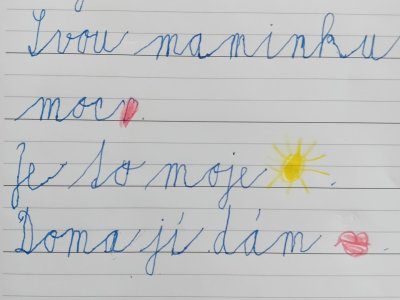 Svou maminku
moc .
Je to moje .
Doma jí dám .